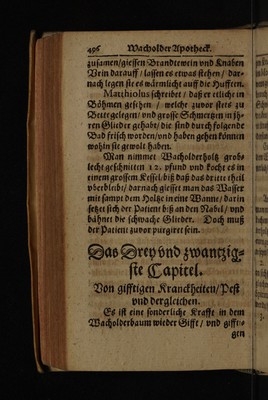 496 Wacholder Apotheck.
zusamen/giessen Brandtewein vnd Knaben
Vrin darauff/ lassen es etwas stehen/ dar-
nach legen sie es wärmlicht auff die Hufften.
Matthiolus schreibt/ daß er etliche in
Böhmen gesehen / welche zuvor stets zu
Bette gelegen/ vnd grosse Schmertzen in jh-
ren Glieder gehabt/ die sind durch folgende
Bad frisch worden/vnd haben gehen können
wohin sie gewolt haben.
Man nimmet Wacholderholtz grob-
lecht geschnitten 12. pfund vnd kocht es in
einem grossem Kessel/biß daß das dritte theil
vberbleibt/ darnach giesset man das Wasser
mit sampt dem Holtze in eine Wanne/ darin
setzet sich der Patient biß an den Nabel/ vnd
bähnet die schwache Glieder. Doch muß
der Patient zuvor purgiret sein.
Das Drey vnd zwantzig-
ste Capitel.
Von gifftigen Kranckheiten/ Pest
vnd dergleichen.
Es ist eine sonderliche Krafft in dem
Wacholderbaum wieder Gifft/ vnd giffti-
gen